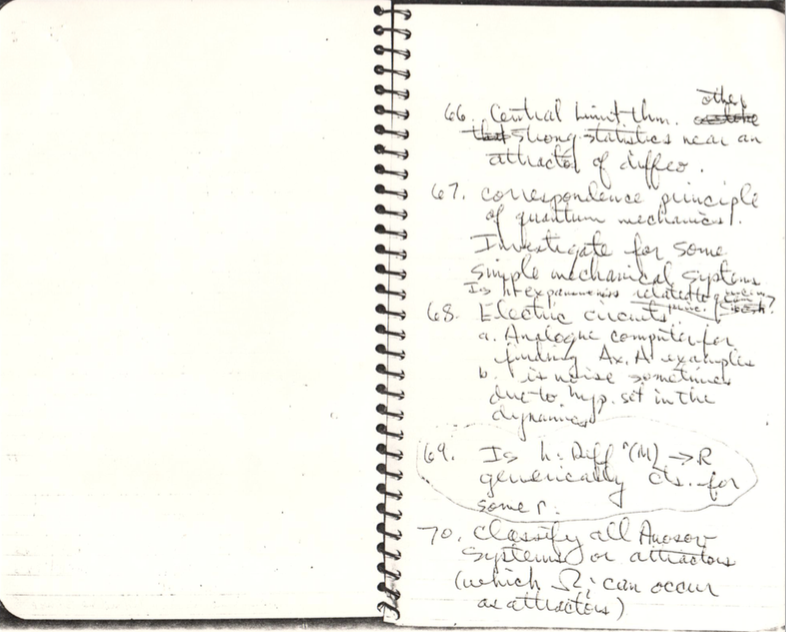 66. Central limit thm. other
strong statistics near an
attractor of diffeo.
67. correspondence principle
of quantum mechanics.
Investigate for some
simple mechanical systems
Is h-expansiveness related to
68. Electric circuits
a. Analogue computer for
finding Ax. A examples
b. is noise sometimes
due to hyp. set in the
dynamics
69. Is h: Diff^r(M) → R
generically cts. for
some r.
70. Classify all Anosov
systems or attractors
(which Ω_i can occur
as attractors)